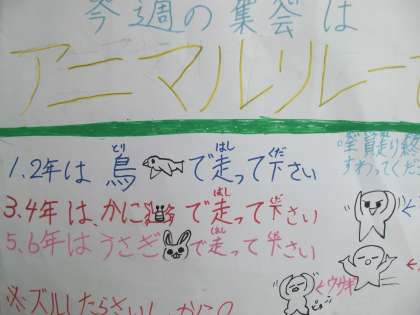 今週の集会は
アニマルリレー
1.2年は鳥で走って下さい
とり はし くだ
3.4年は、かにで走って下さい
はし くだ
5.6年はうさぎで走って下さい
はし くだ
走り終
すわってくだ
←ウサギ
ピョーン
※ズルしたらさいしょ